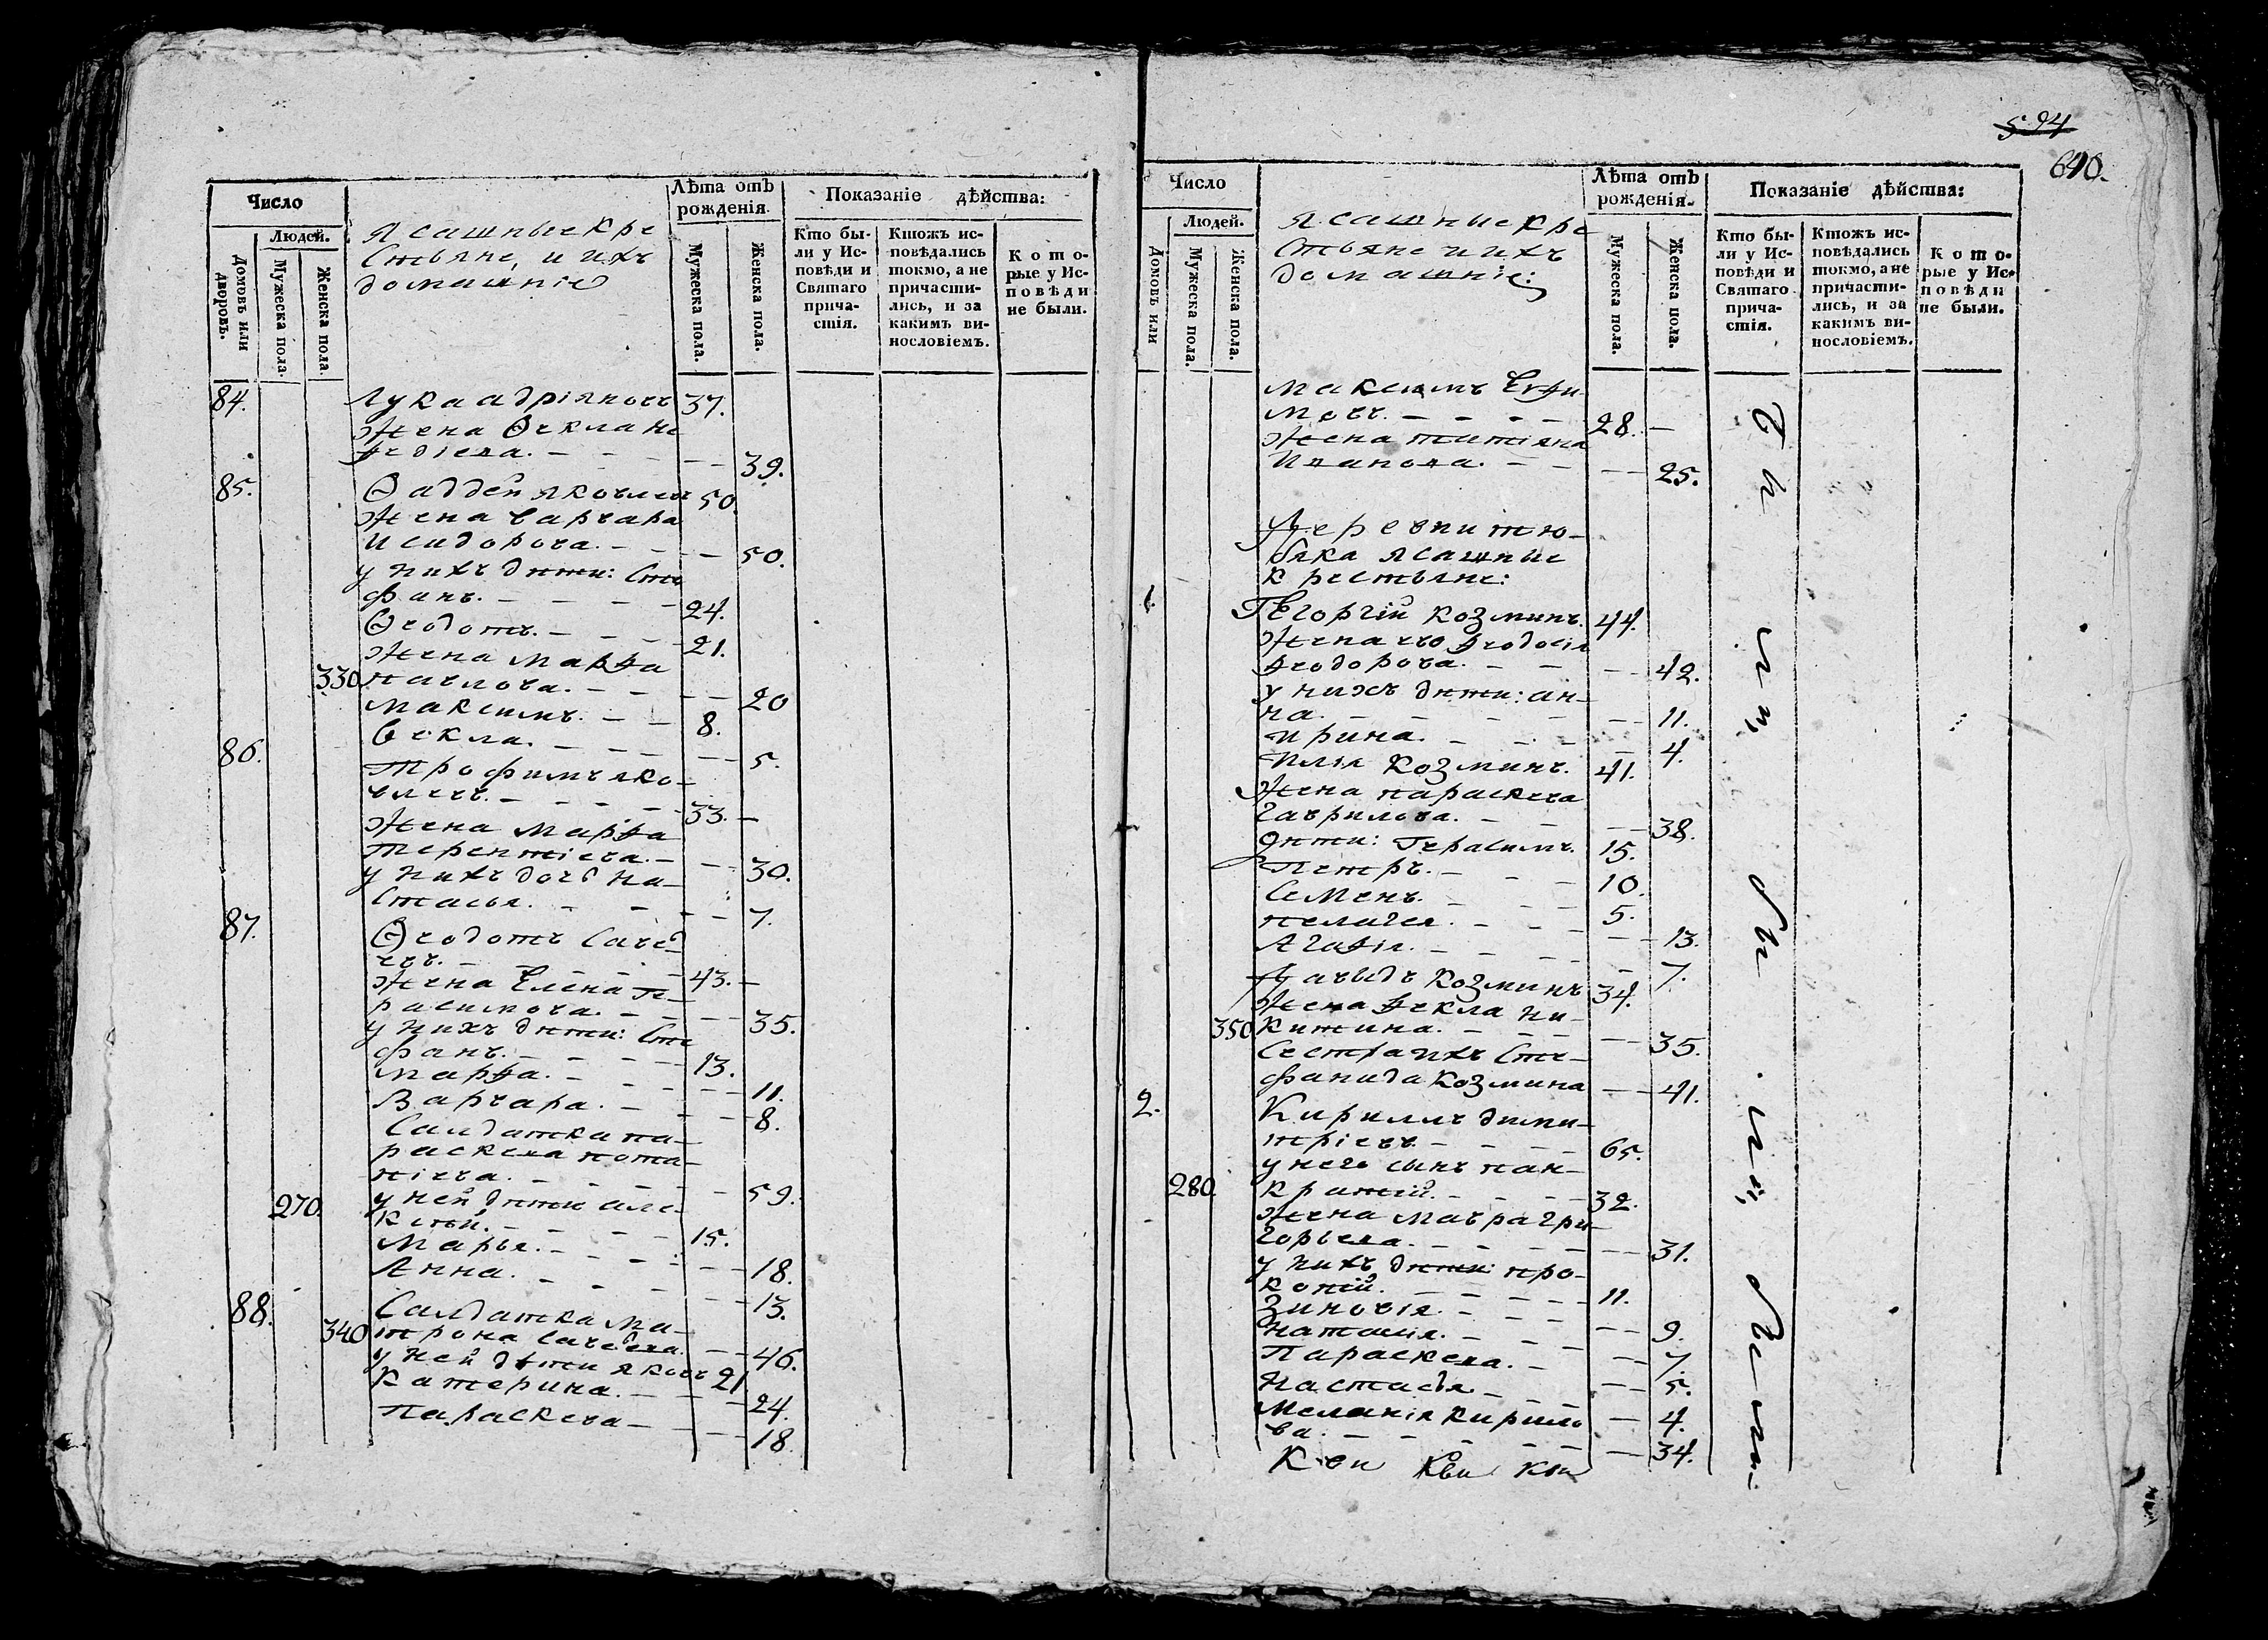 Число
Людей.
Домовъ или дворовъ.
Мужеска пола.
Женска пола.
Ясашные кре
стьяне, и ихъ
домашніе
Лѣта отъ рожденія.
Мужеска пола.
Женска пола.
Показаніе дѣйства:
Кто были у Исповѣди и Святаго причастія.
Ктожъ исповѣдались токмо, а не причастились, и за какимъ винословіемъ.
Которые у Исповѣди не были.
84. Лука адріяновъ 37.
Жена Ѳекла Ме
ѳедіева. 39.
85. Ѳаддей яковлевъ 50.
Жена варвара
исидорова. 50.
у нихъ дѣти: Сте
фанъ. 24.
Ѳеодотъ. 21.
Жена Марѳа
330 павлова. 20
Максимъ. 8.
Ѳекла. 5.
86. Трофимъ яко
влевъ. 33.
Жена Марѳа
терентіева. 30.
у нихъ дочь На
стасья. 7.
87. Ѳеодотъ Савель
евъ. 43.
Жена Елена ге
расимова. 35.
у нихъ дѣти: Сте
фанъ. 13.
Марѳа. 11.
Варвара. 8.
Салдатка па
раскева пота
піева. 59.
270. у ней дѣти але
ксѣй. 15.
Марья. 18.
Анна. 13.
88. Салдатка Ма
340 трона савельева. 46.
у ней дѣти яковъ 21
Катерина. 24.
Параскева 18.
594
640.
Число
Людей.
Домовъ или
Мужеска пола.
Женска пола.
Ясашные кре
стьяне и ихъ
домашніе:
Лѣта отъ рожденія.
Мужеска пола.
Женска пола.
Показаніе дѣйства:
Кто были у Исповѣди и Святаго причастія.
Ктожъ исповѣдались токмо, а не причастились, и за какимъ винословіемъ.
Которые у Исповѣди не были.
Максимъ Евѳи
мовъ. 28.
Жена татіяна
Иванова. 25.
Деревни тю
бяка ясашные
крестьяне:
1. Георгій Козминъ. 44.
Жена его ѳеодосія
ѳеодорова. 42.
у нихъ дѣти: ан
на. 11.
Ирина. 4.
Илія Козминъ. 41.
Жена параскева
гаврилова. 38.
Дѣти: Герасимъ. 15.
Петръ. 10.
Семенъ. 5.
пелагея. 13.
Агаѳія. 7.
Давыдъ Козминъ 34.
Жена ѳекла ни
350 китина. 35.
Сестра ихъ Сте
фанида Козмина 41.
2. Кириллъ дими
тріевъ. 65.
у него сынъ пан
280. кратій. 32.
Жена Мавра гри
горьева. 31.
у нихъ дѣти про
копій. 11.
Зиновія. 9.
Наталія. 7.
Параскева. 5.
Настасья 4.
Меланія кирило
ва. 34.